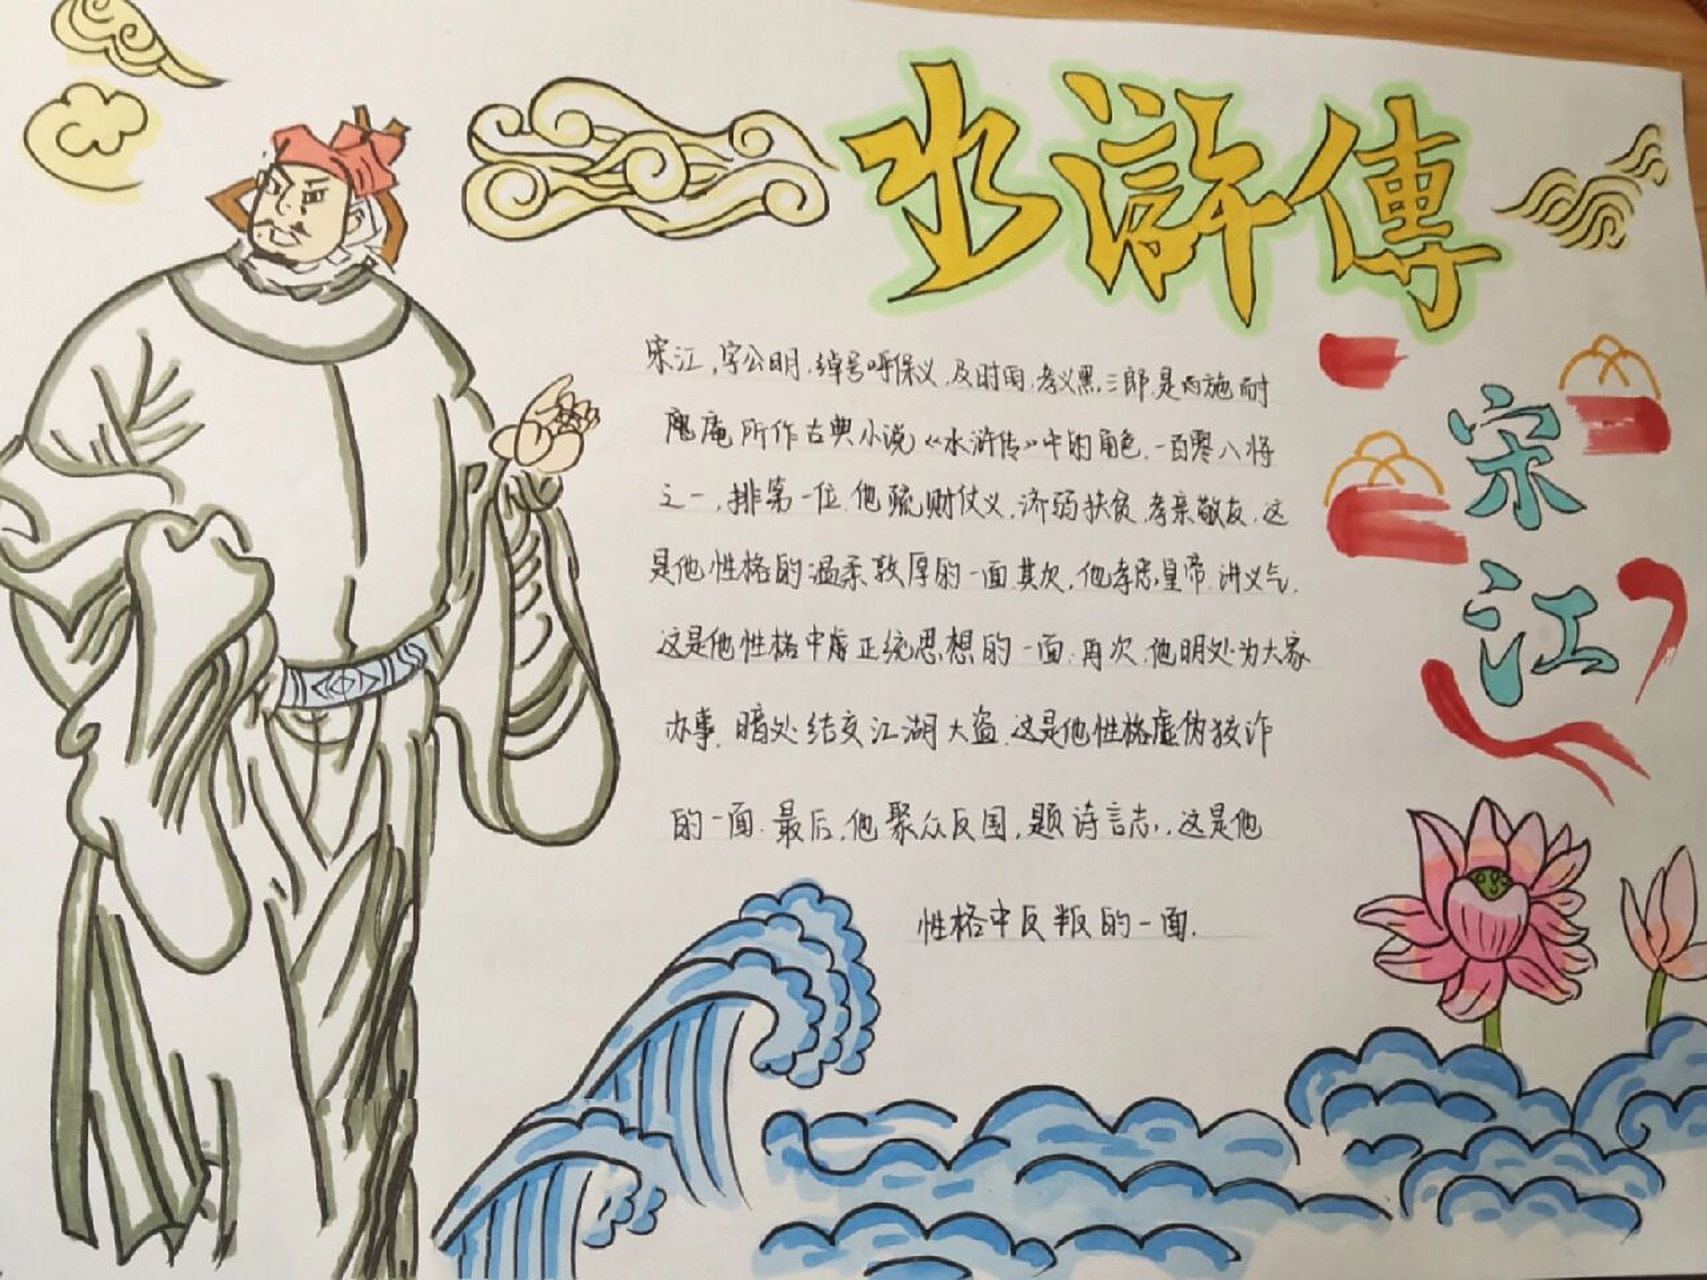 水滸傳
宋江
宋江,字公明,绰号呼保义、及时雨、孝义黑三郎,是由施耐
庵所作古典小说《水浒传》中的角色,一百零八将
之一,排第一位.他疏财仗义,济弱扶贫,孝亲敬友,这
是他性格的温柔敦厚的一面.其次,他孝忠皇帝.讲义气,
这是他性格中 正统思想的一面.再次,他明处为大家
办事,暗处结交江湖大盗.这是他性格虚伪狡诈
的一面.最后,他聚众反国,题诗言志,,这是他
性格中反叛的一面.